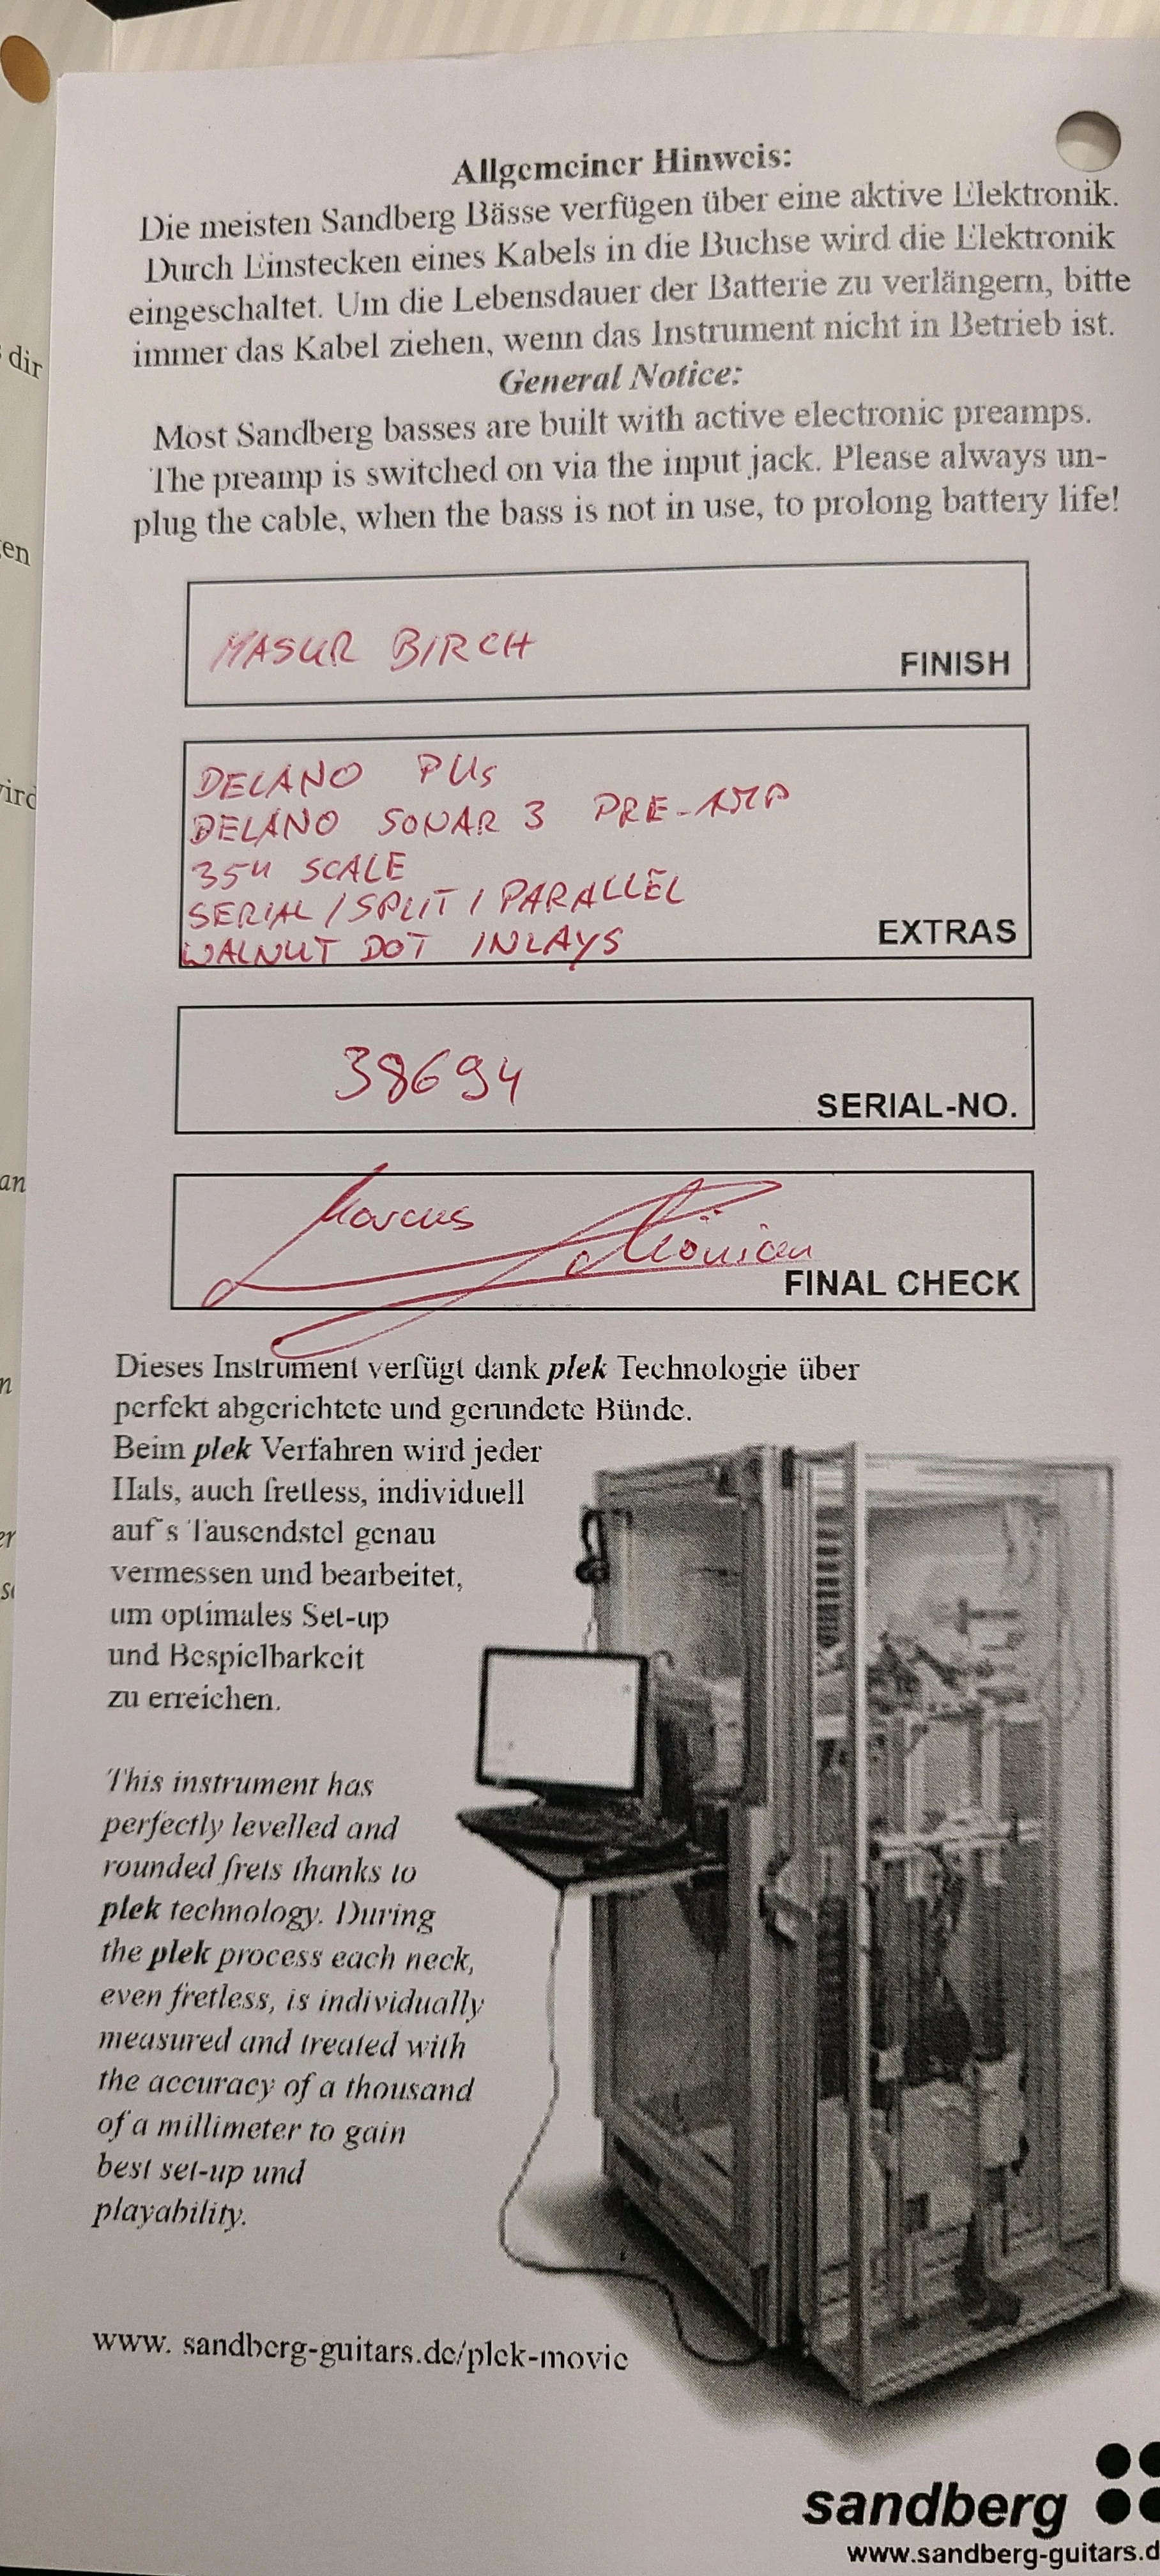 dir
en
Allgemeiner Hinweis:
Die meisten Sandberg Bässe verfügen über eine aktive Elektronik.
Durch Einstecken eines Kabels in die Buchse wird die Elektronik
eingeschaltet. Um die Lebensdauer der Batterie zu verlängern, bitte
immer das Kabel ziehen, wenn das Instrument nicht in Betrieb ist.
General Notice:
Most Sandberg basses are built with active electronic preamps.
The preamp is switched on via the input jack. Please always un-
plug the cable, when the bass is not in use, to prolong battery life!
MASUR BIRCH
FINISH
DELANO PUs
DELANO SONAR 3 PRE-AMP
35" SCALE
SERIAL / SPLIT / PARALLEL
WALNUT DOT INLAYS
EXTRAS
38694
SERIAL-NO.
Marcus
FINAL CHECK
Dieses Instrument verfügt dank plek Technologie über
perfekt abgerichtete und gerundete Bünde.
Beim plek Verfahren wird jeder
Hals, auch fretless, individuell
auf´s Tausendstel genau
vermessen und bearbeitet,
um optimales Set-up
und Bespielbarkeit
zu erreichen.
This instrument has
perfectly levelled and
rounded frets thanks to
plek technology. During
the plek process each neck,
even fretless, is individually
measured and treated with
the accuracy of a thousand
of a millimeter to gain
best set-up und
playability.
www. sandberg-guitars.de/plek-movie
sandberg
www.sandberg-guitars.d